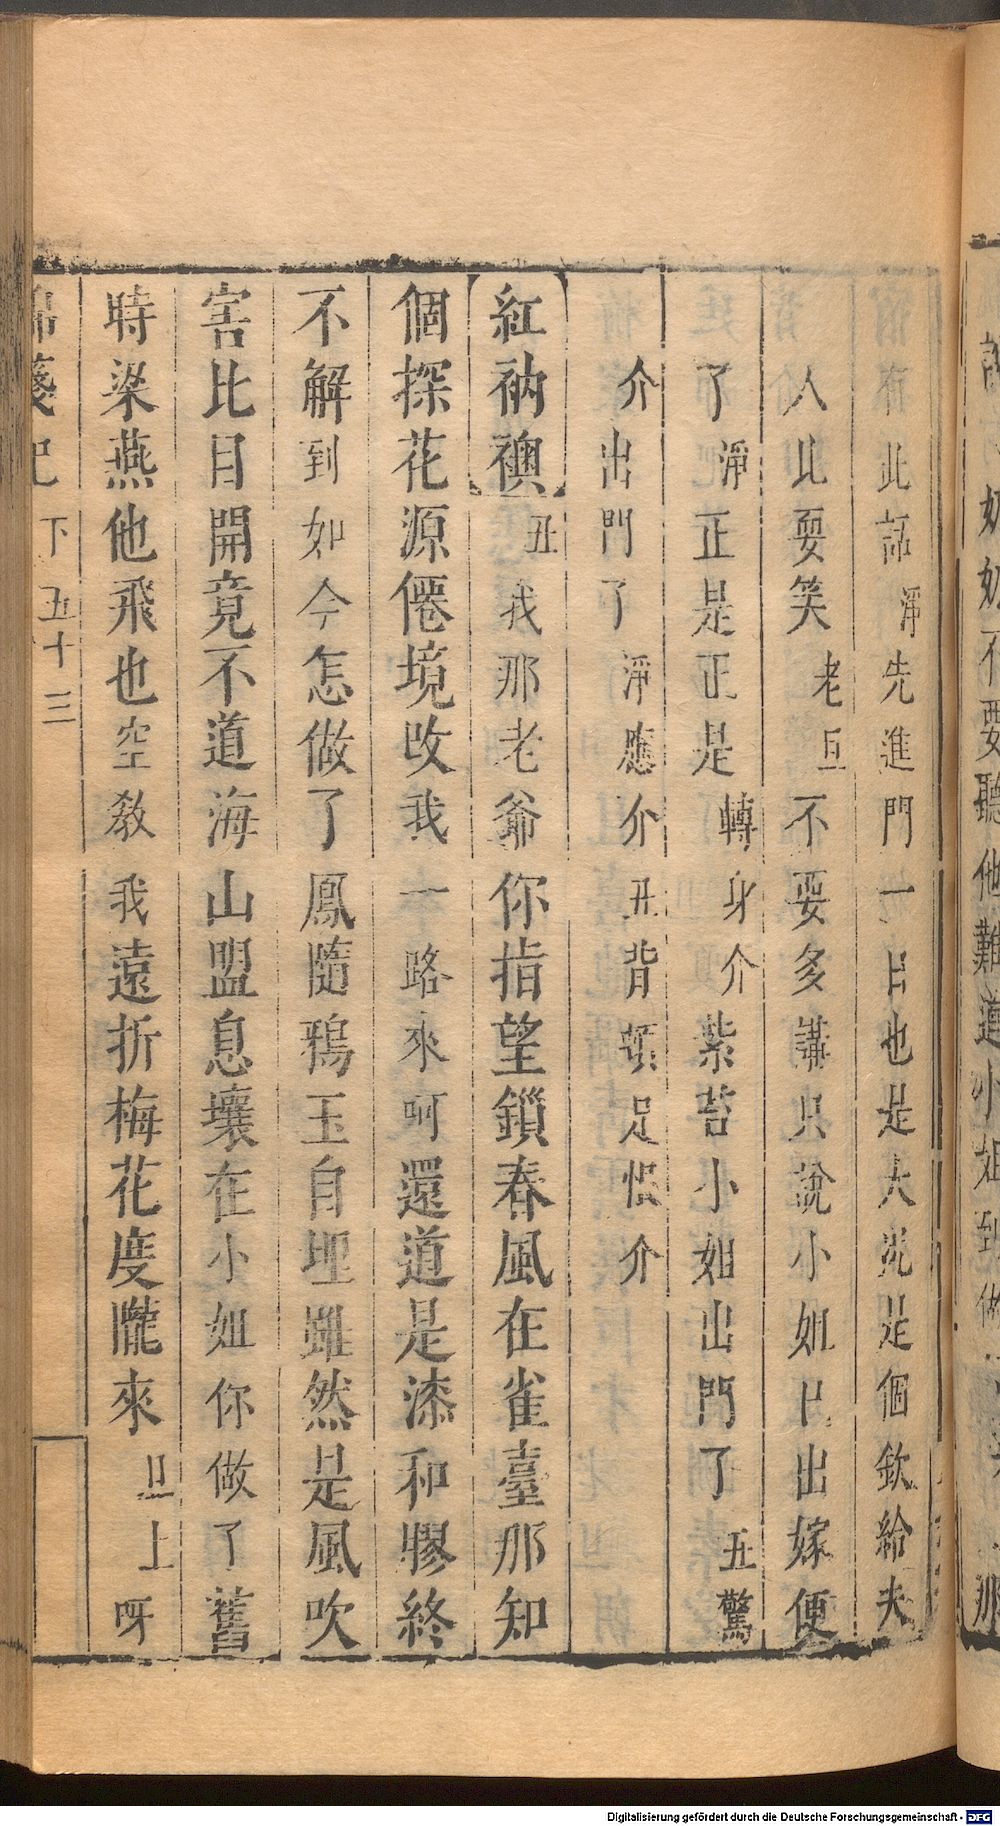 有此話淨先進門一日也是大況是個欽給夫
人此耍笑老旦不要多講只說小姐已出嫁便
了淨正是正是轉身介紫苔小姐出門了丑驚
介出門了淨應介丑背頓足恨介
紅衲襖丑我那老爺你指望鎖春風在雀臺那知
個探花源僊境改我一路來呵還道是漆和膠終
不解到如今怎做了鳳隨鴉玉自埋雖然是風吹
害比目開竟不道海山盟息壤在小姐你做了舊
時梁燕他飛也空教我遠折梅花度隴來旦上呀
錦箋記 下 五十三
奶奶不要聽他難道小姐到做
那
Digitalisierung gefördert durch die Deutsche Forschungsgemeinschaft - DFG